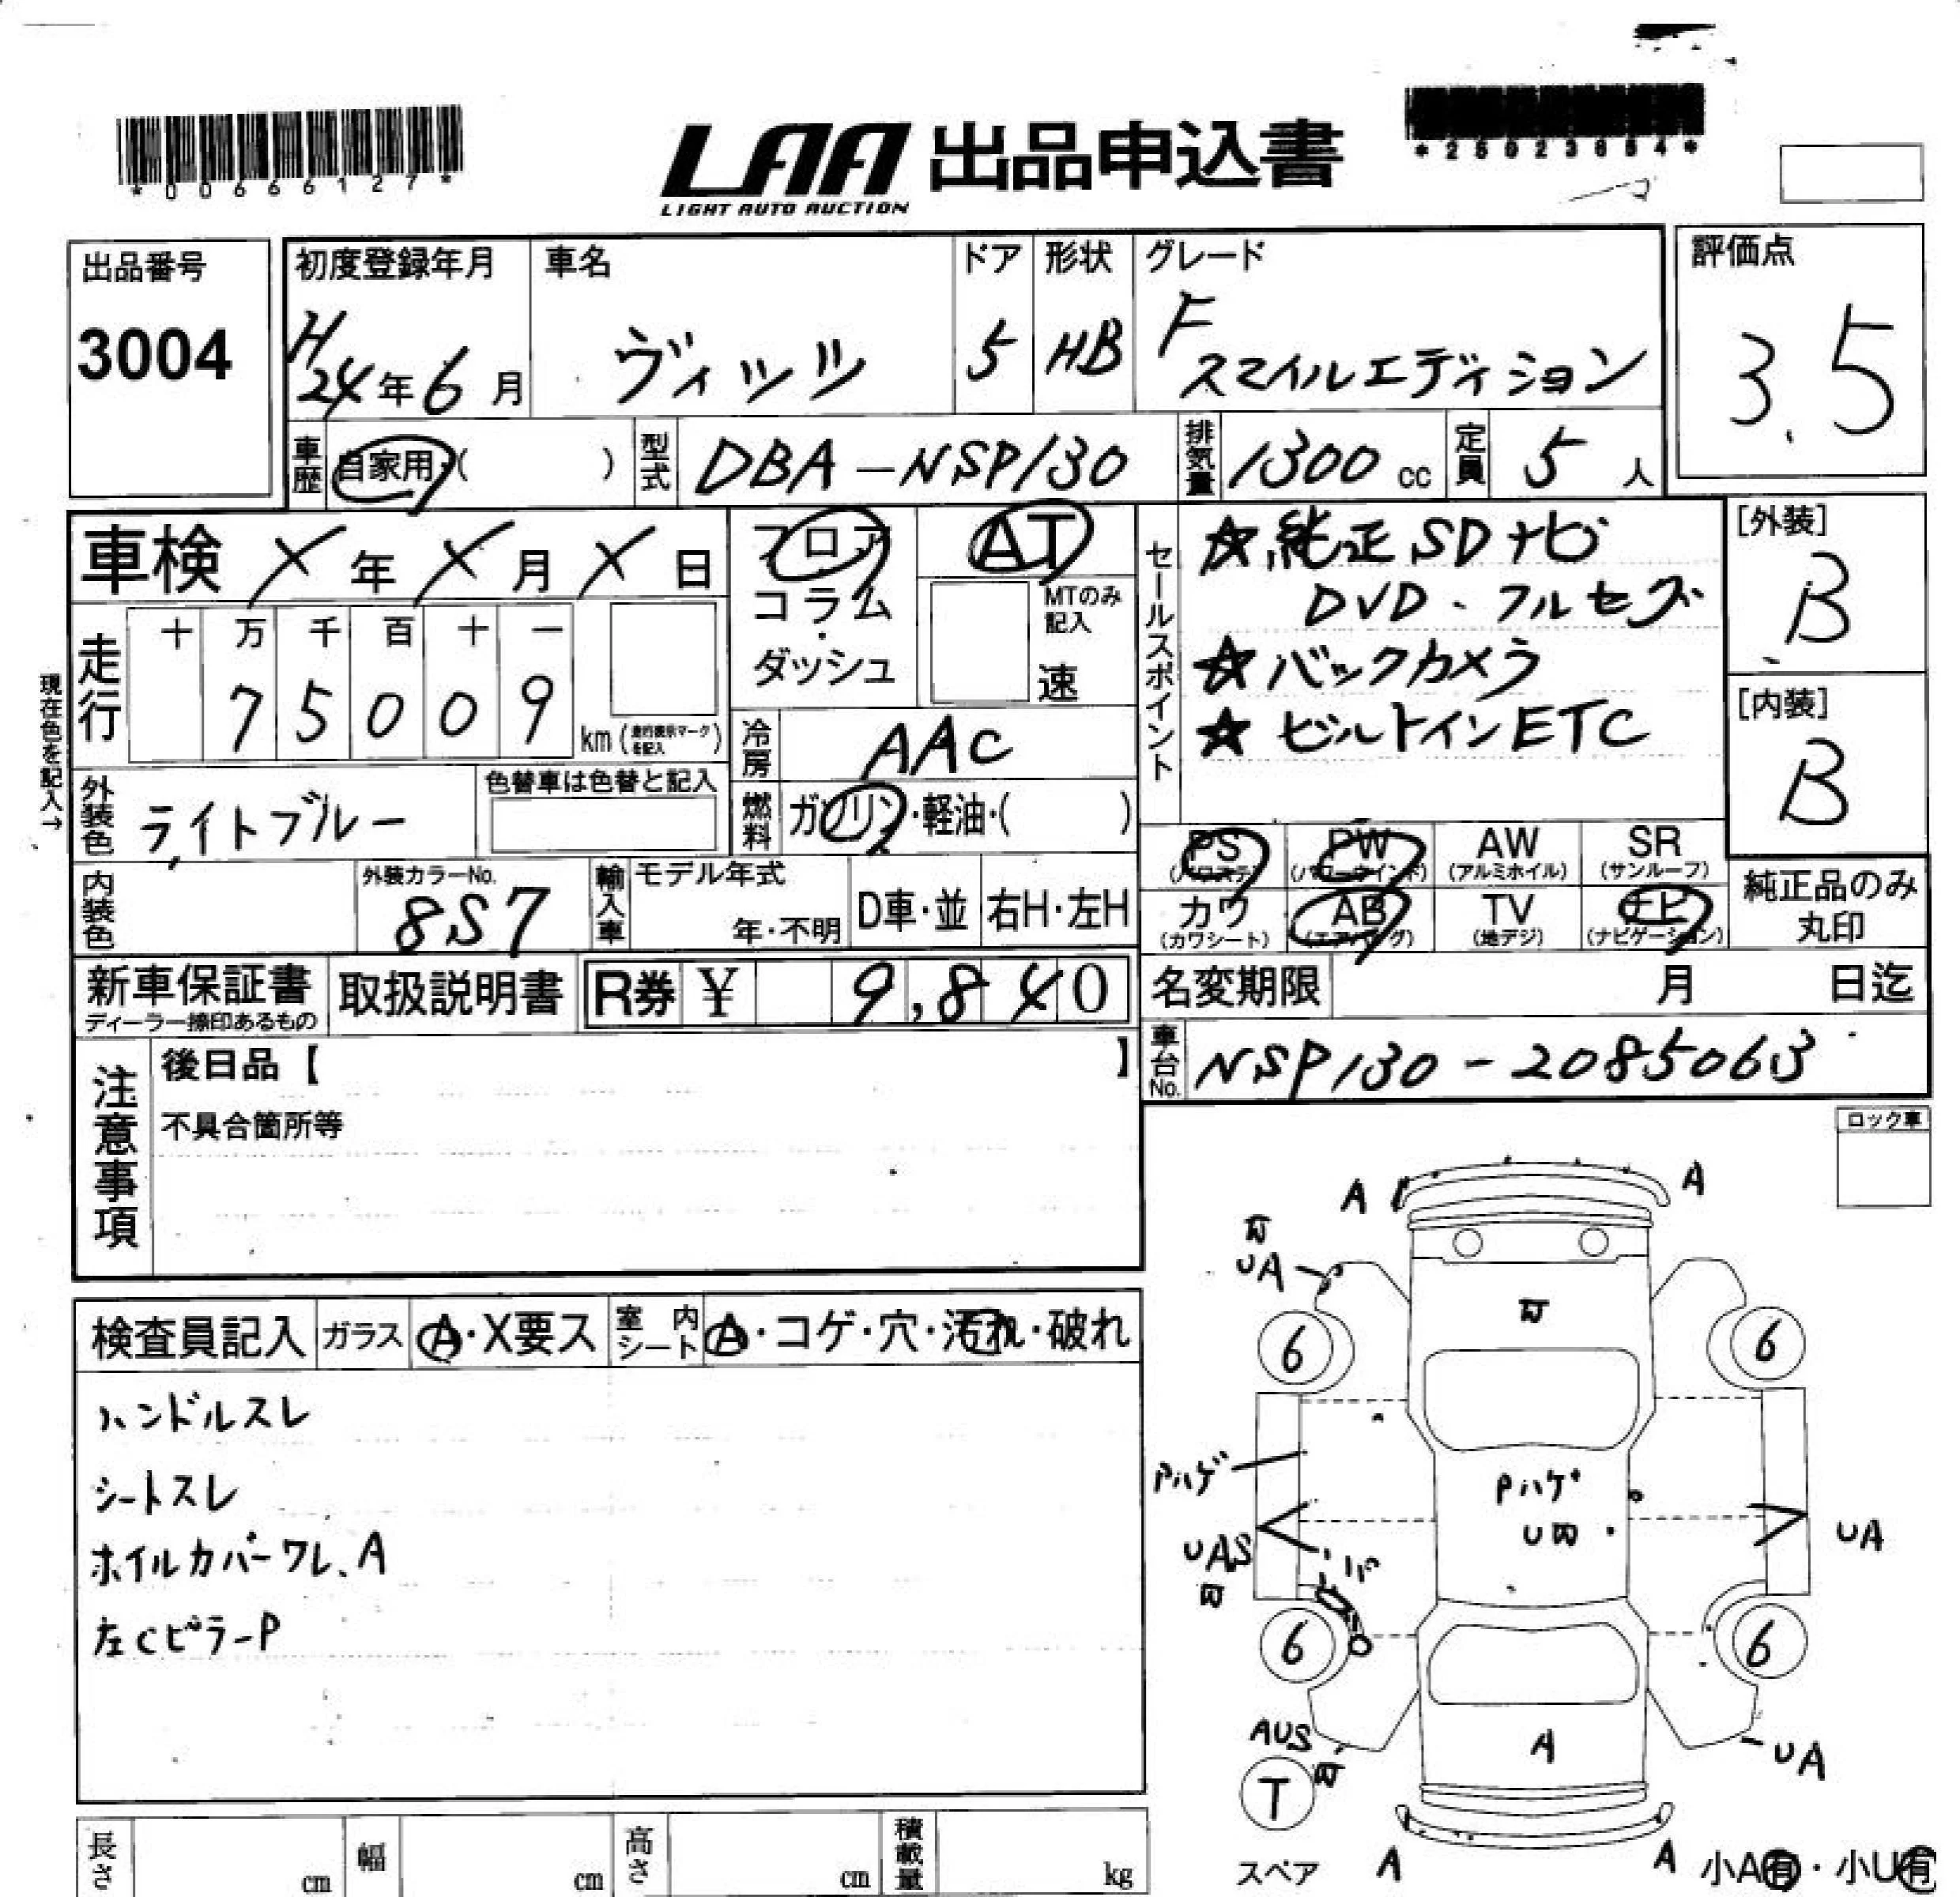 *00666127*
LAA 出品申込書
LIGHT AUTO AUCTION
*25023654*
出品番号
3004
初度登録年月
H24年6月
車名
ヴィッツ
ドア
5
形状
HB
グレード
F
スマイルエディション
評価点
3.5
車歴
自家用・( )
型式
DBA-NSP130
排気量
1300cc
定員
5人
車検
X年X月X日
フロア
コラム
・
ダッシュ
AT
MTのみ
記入
速
セールスポイント
☆純正SDナビ
DVD・フルセグ
☆バックカメラ
☆ビルトインETC
[外装]
B
[内装]
B
現在色を記入→
走行
十 万 千 百 十 一
7 5 0 0 9
km(走行表示マークを記入)
冷房
AAC
燃料
ガソリン・軽油・( )
外装色
ライトブルー
色替車は色替と記入
内装色
外装カラーNo.
8S7
輸入車
モデル年式
年・不明
D車・並
右H・左H
PS
(パワステ)
PW
(パワーウインド)
AW
(アルミホイル)
SR
(サンルーフ)
カワ
(カワシート)
AB
(エアバッグ)
TV
(地デジ)
ナビ
(ナビゲーション)
純正品のみ
丸印
新車保証書
ディーラー捺印あるもの
取扱説明書
R券 ¥ 9,840
名変期限
月 日迄
車台No.
NSP130-2085063
注意事項
後日品【 】
不具合箇所等
ロック車
検査員記入
ガラス
A・X要ス
室内シート
A・コゲ・穴・汚れ・破れ
ハンドルスレ
シートスレ
ホイルカバーワレ、A
左CピラーP
A
A
UA
6
6
Pハゲ
Pハゲ
U
UAS
UA
6
6
AUS
A
UA
T
スペア
A
A
小A有・小U有
長さ
cm
幅
cm
高さ
cm
積載量
kg